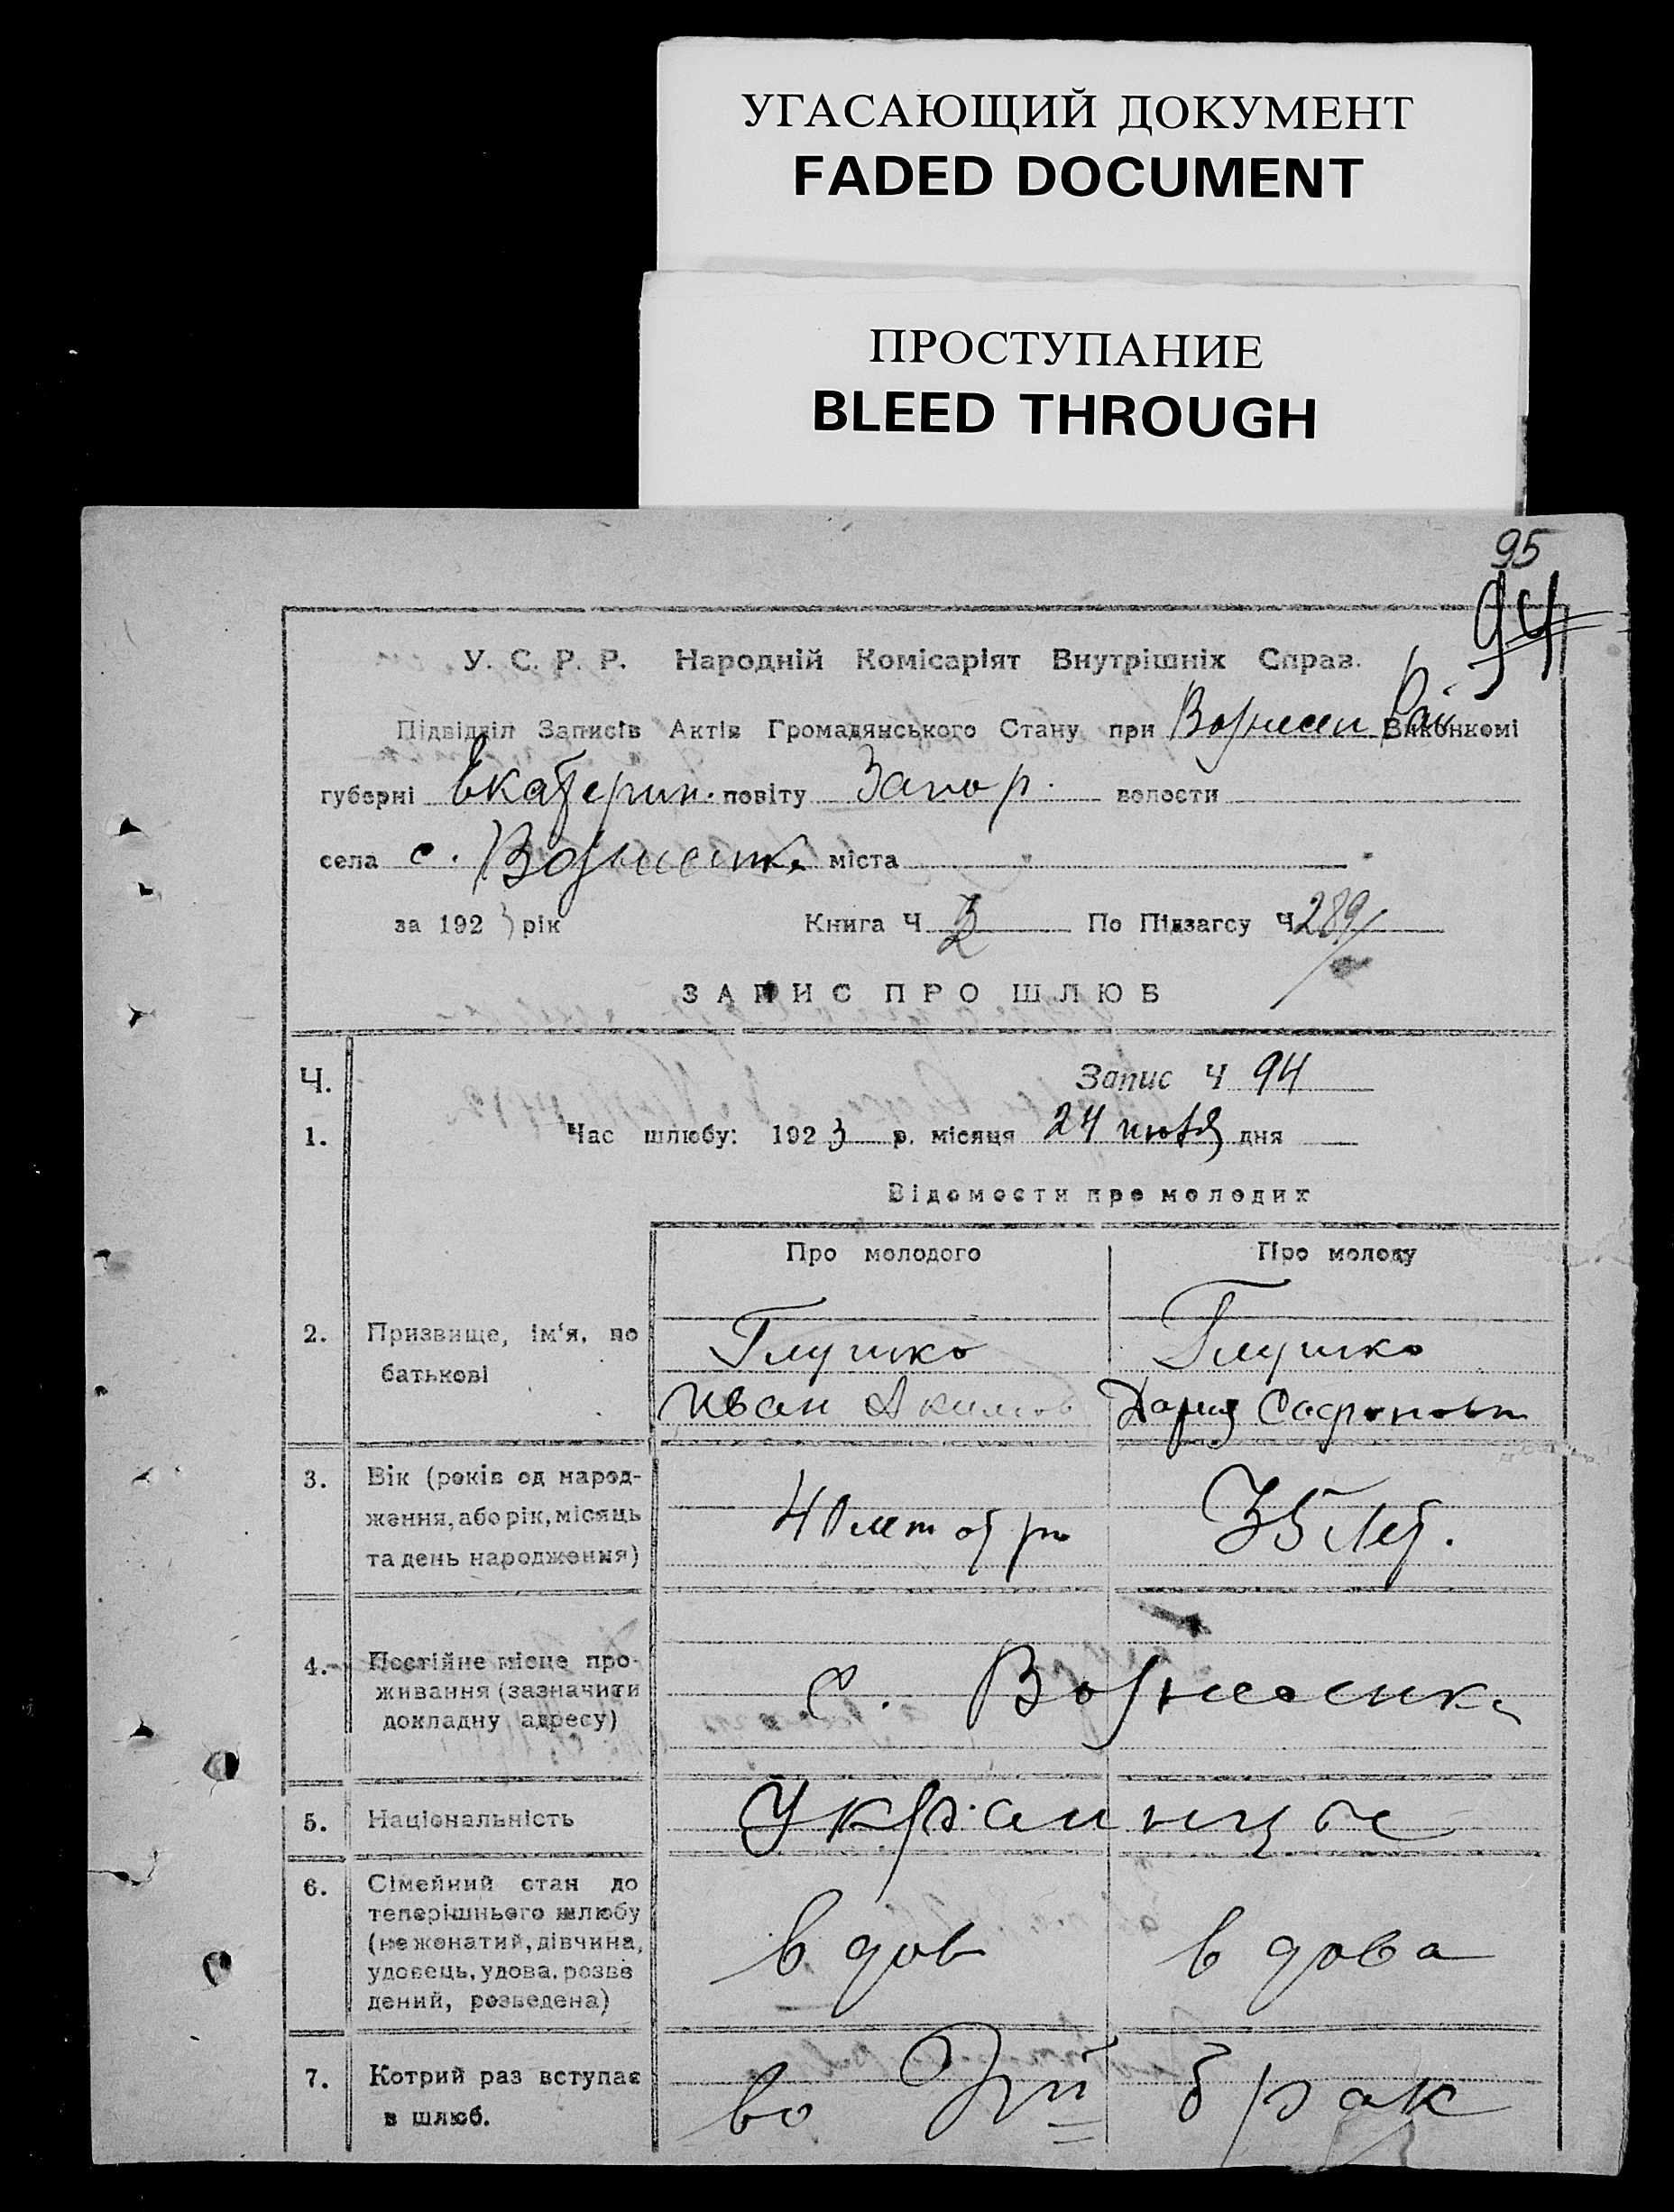 УГАСАЮЩИЙ ДОКУМЕНТ
FADED DOCUMENT
ПРОСТУПАНИЕ
BLEED THROUGH
95
94
У. С. Р. Р. Народній Комісаріят Внутрішніх Справ.
Підвідділ Записів Актів Громадянського Стану при Вознесен Рай Виконкомі
губерні Екатерин. повіту Запор. волости
села с. Вознесенка міста
за 1923 рік Книга Ч По Підзагсу Ч 289
ЗАПИС ПРО ШЛЮБ
Ч. Запис Ч 94
1. Час шлюбу: 1923 р. місяця 24 дня
Відомости про молодих
Про молодого Про молоду
2. Призвище, ім'я, по батькові
Глушко Глушко
Иван Акимов Дария Софронов
3. Вік (років од народ-
ження, або рік, місяць
та день народження)
40 лет 35 лет.
4. Постійне місце про-
живання (зазначити
докладну адресу)
с. Вознесенка
5. Національність Украинцы
6. Сімейний стан до
теперішнього шлюбу
(не жонатий, дівчина,
удовець, удова, розве
дений, розведена)
вдов вдова
7. Котрий раз вступає
в шлюб.
во 2й брак